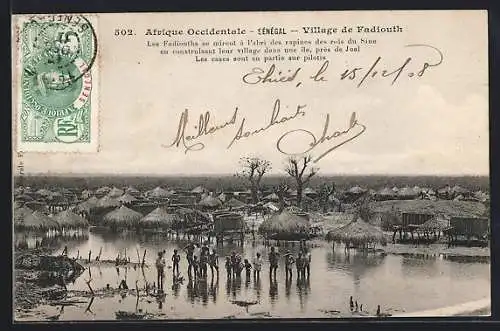 502. Afrique Occidentale - SÉNÉGAL - Village de Fadiouth
Les Fadiouths se mirent à l'abri des rapines des rois du Sine
en construisant leur village dans une île, près de Joal
Les cases sont en partie sur pilotis
Thiès, le 15/12/08
Meilleurs souhaits
Charly
SÉNÉGAL
RF